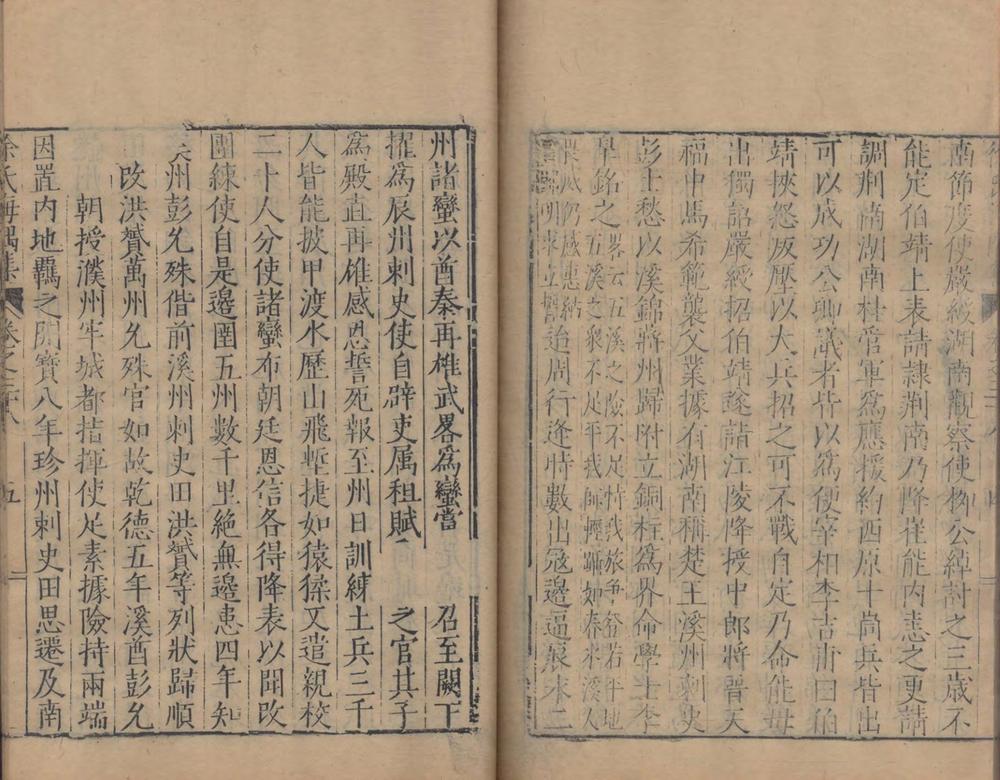 南節度使嚴綬湖南觀察使柳公綽討之三歲不
能定伯靖上表請隷荆南乃降崔能内恚之更請
調荆南湖南桂管軍爲應援約西原十尚兵皆出
可以成功公卿議者皆以爲便宰相李吉甫曰伯
靖挾怨成壓以大兵招之可不戰自定乃命能毋
出獨詔嚴綬招伯靖遂請江陵降授中郎將晉天
福中馬希範襲父業據有湖南稱楚王溪州刺史
彭士愁以溪錦將州歸附立銅柱爲界命學士李
臯銘之畧云五溪之險不足恃我旅爭登若平地
五溪之衆不足平我師輕躡如春氷溪人
畏威仍感惠納
明求立誓迨周行逢時數出寇邊逼辰永二
州諸蠻以酋秦再雄武畧爲蠻當召至闕下
擢爲辰州刺史使自辟吏属租賦之官其子
爲殿直再雄感恩誓死報至州日訓練土兵三千
人皆能披甲渡水歷山飛塹捷如猿猱又遣親校
二十人分使諸蠻布朝廷恩信各得降表以聞改
團練使自是邊圉五州數千里絶無邊患四年知
州彭允殊偕前溪州刺史田洪贇等列狀歸順
改洪贇萬州允殊官如故乾德五年溪酋彭允
朝授濮州牢城都指揮使足素據險持兩端
因置内地覊之開寶八年珍州刺史田思遷及南
卷之二八 五